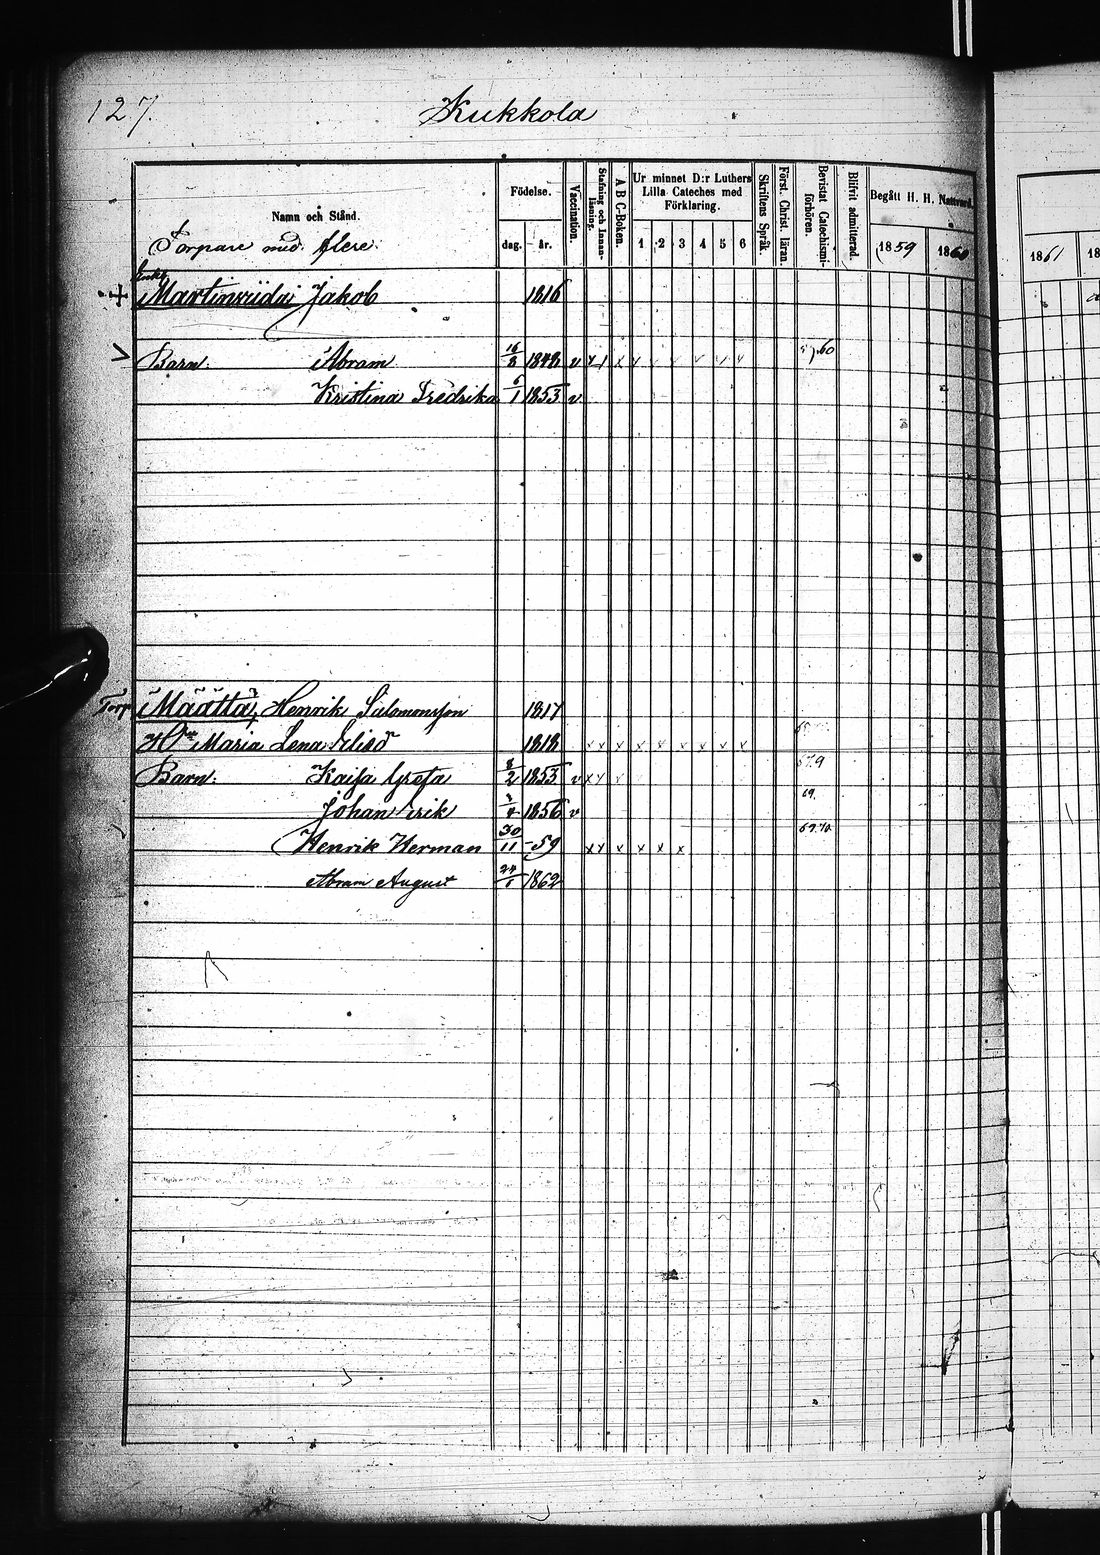 127.
Kukkola
Namn och Stånd.
Torpare med flere.
Födelse.
dag. år.
Vaccination.
Stafning och Innanläsning.
A B C-Boken.
Ur minnet D:r Luthers Lilla Cateches med Förklaring.
1 2 3 4 5 6
Skriftens Språk.
Först. Christ. läran
Bevistat Catechismiförhören.
Blifvit admitterad.
Begått H. H. Nattvard.
1859 1860
1861 18
Enkl.
+ Martinviidai Jakob 1816
Barn: Abram 16/8 1848 v x x x v v v v v v
Kristina Fredrika 6/1 1853 v
Torp. Määttä, Henrik Salomonsson 1817
H:u Maria Lena 1818 x x x x x x x x x
Barn: Kaisa Greta 8/2 1853 v x x
69.
Johan Erik 1856 v
69.70.
Henrik Herman 30/11 -59 x x x x x x
Abram August 1862